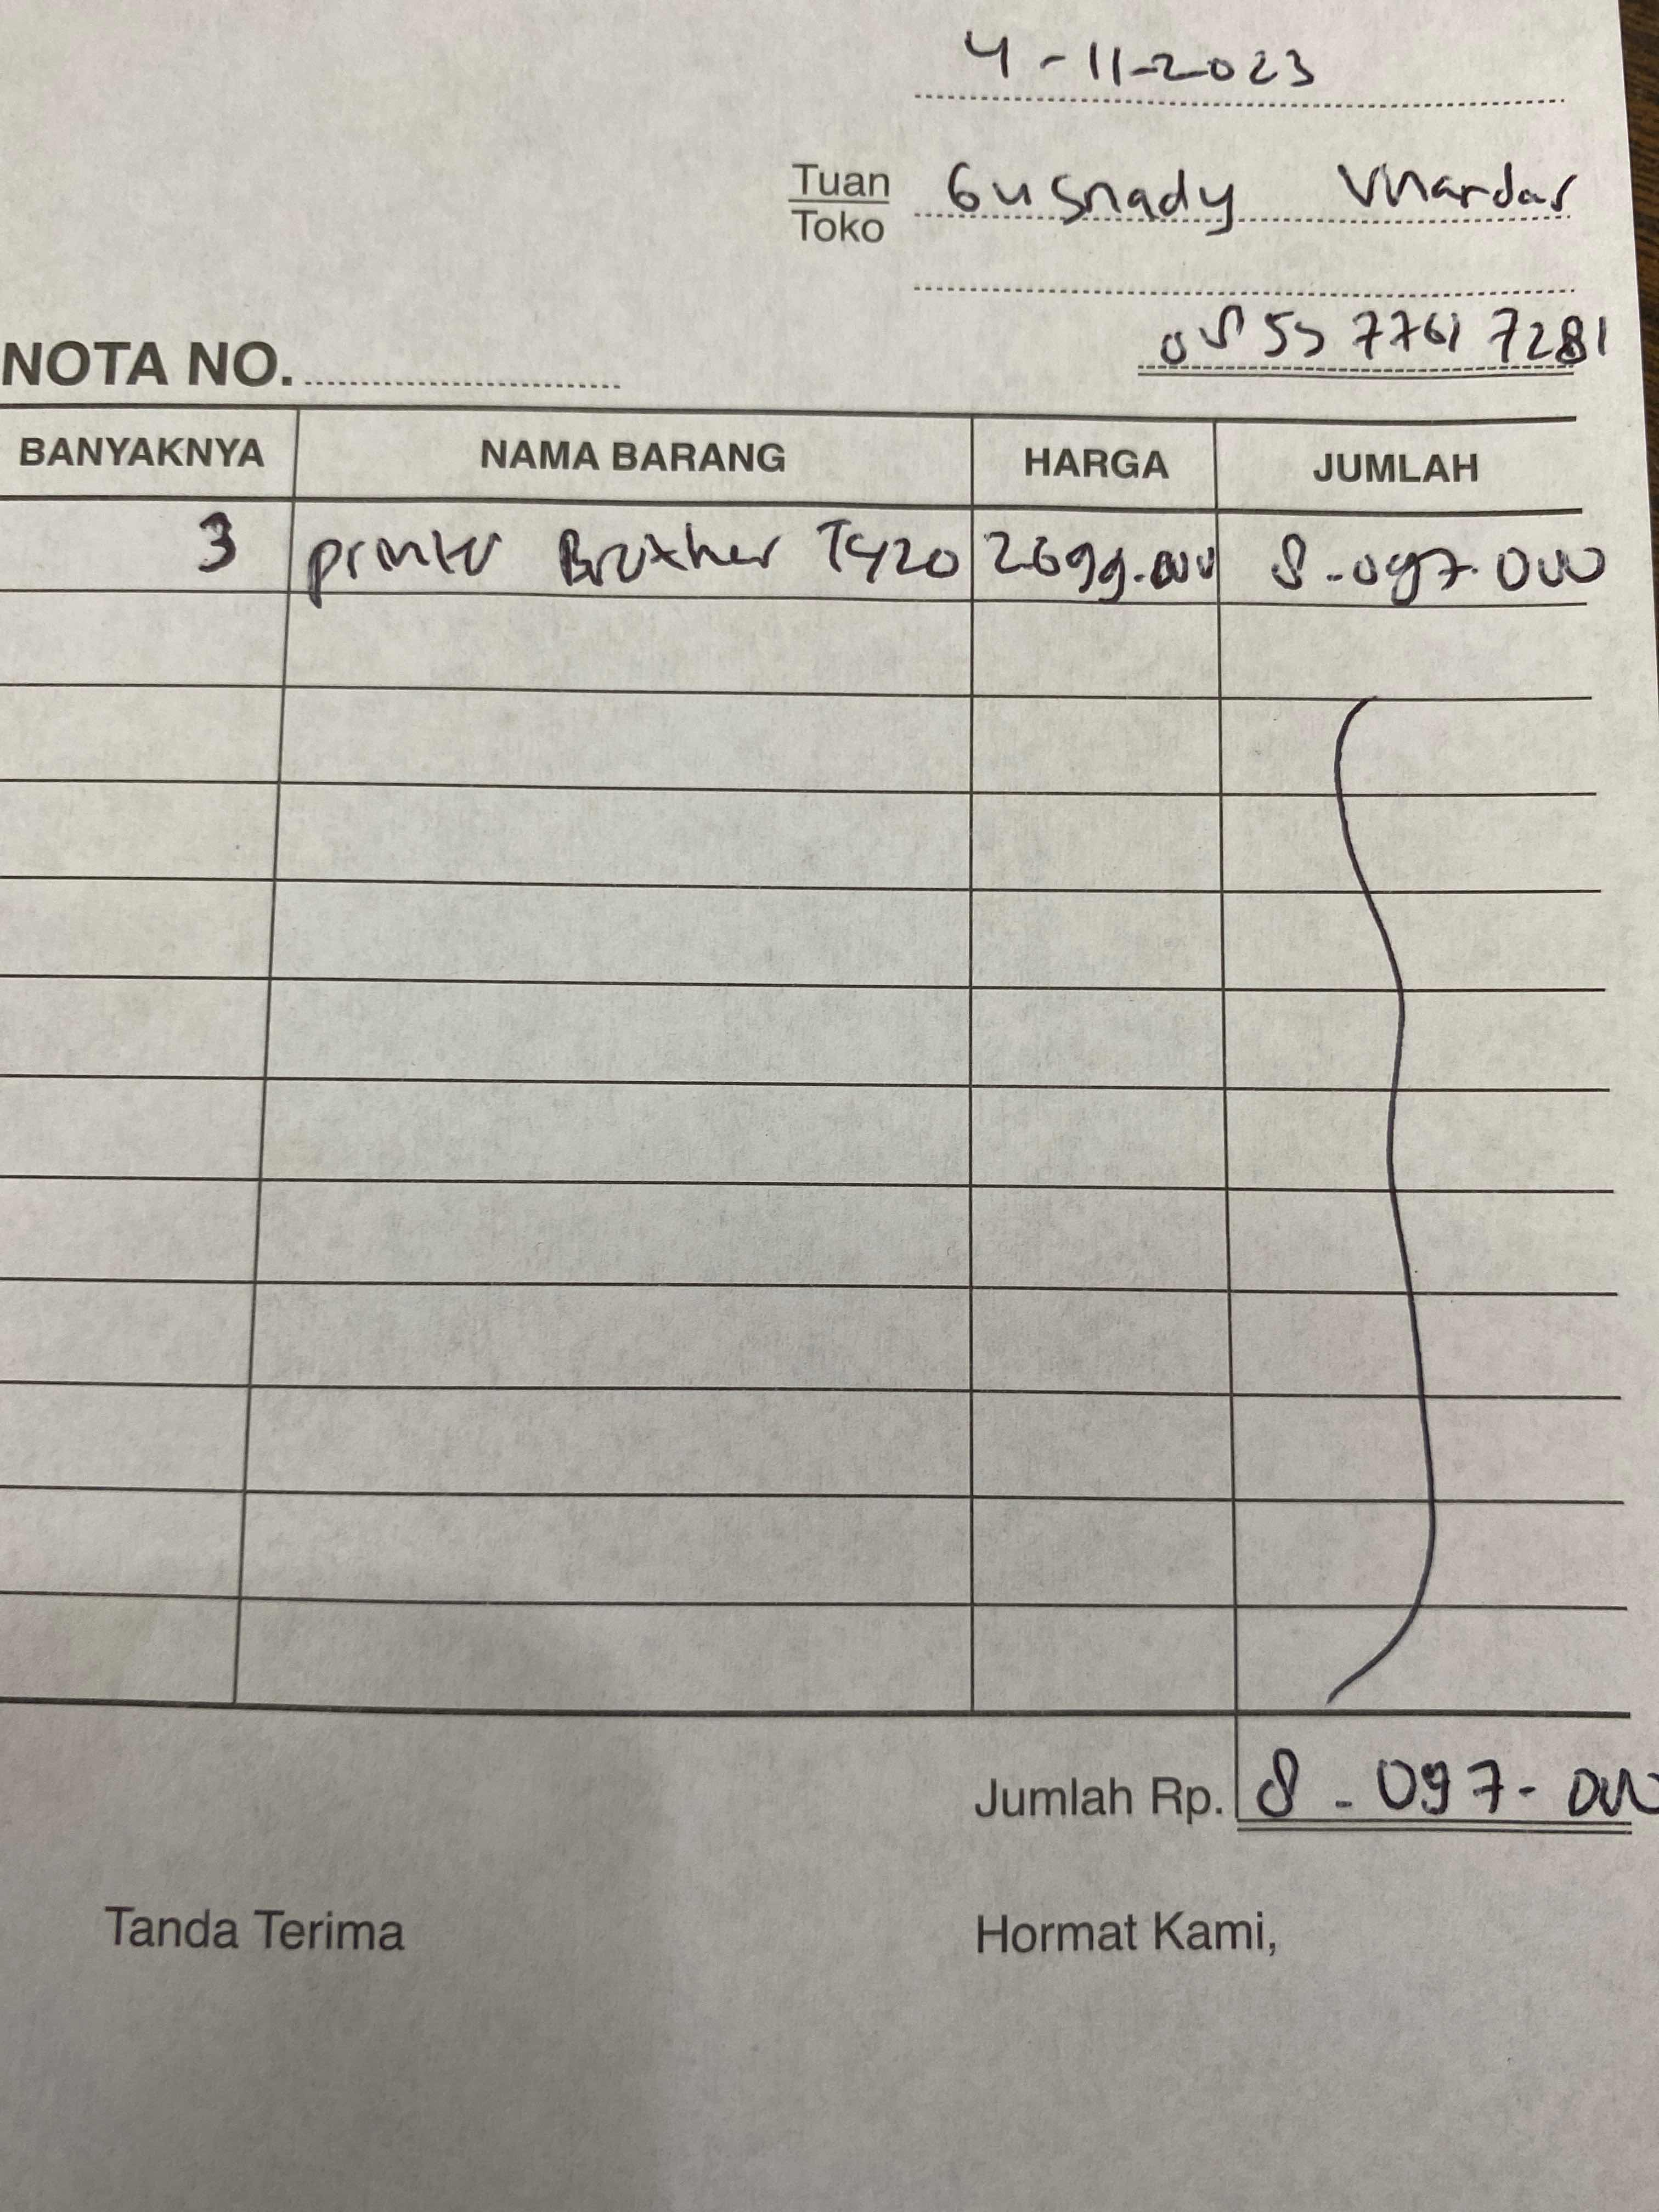 4-11-2023
Tuan Gusnady
Toko
0855 7761 7281
NOTA NO.
BANYAKNYA NAMA BARANG HARGA JUMLAH
3 printer Brother T420 2699.000 8.097.000
Jumlah Rp. 8.097.000
Tanda Terima Hormat Kami,